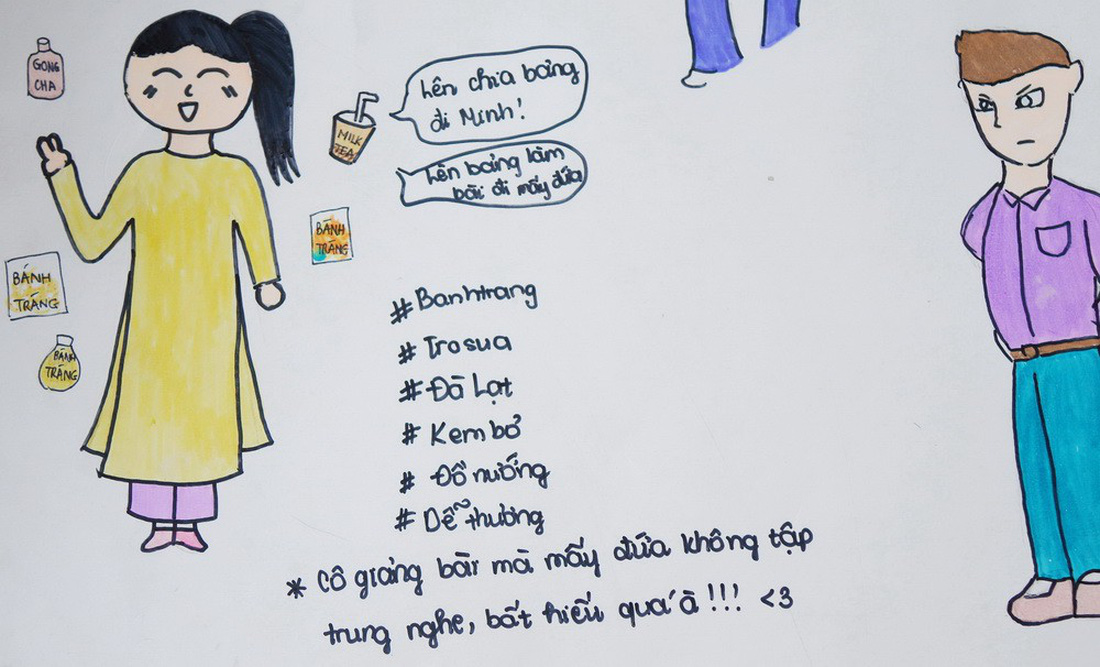 GONG
CHA
Lên chia bảng
đi Minh!
MILK
TEA
Lên bảng làm
bài đi mấy đứa
BÁNH
TRÁNG
BÁNH
TRÁNG
BÁNH
TRÁNG
#Banhtrang
#Trasua
#Đà Lạt
#Kem bơ
#Đồ nướng
#Dễ thương
* Cô giảng bài mà mấy đứa không tập
trung nghe, bất hiếu quá à!!! <3